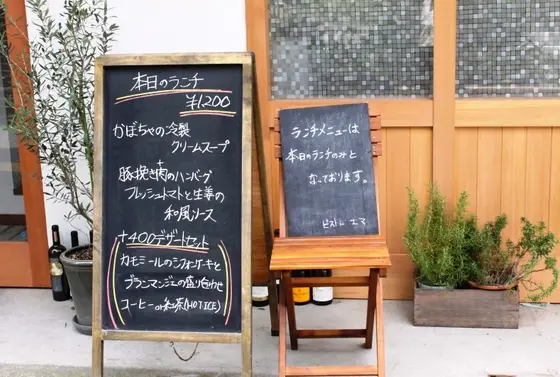 本日のランチ
¥1,200
かぼちゃの冷製
クリームスープ
豚挽き肉のハンバーグ
フレッシュトマトと生姜の
和風ソース
+400デザートセット
カモミールのシフォンケーキと
ブランマンジェの盛り合わせ
コーヒー or 紅茶(HOT.ICE)
ランチメニューは
本日のランチのみと
なっております。
ビストロ